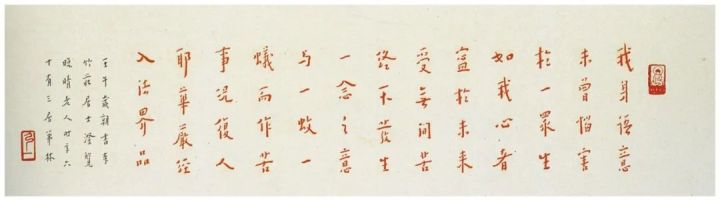 我身語意
未曾惱害
於一眾生
如我心者
寧於未來
受無間苦
終不發生
一念之意
与一蚊一
蟻而作苦
事況復人
耶華嚴經
入法界品
壬午歲朝書奉
竹莊居士澄覽
晚晴老人時年六
十有三居茀林
弘一